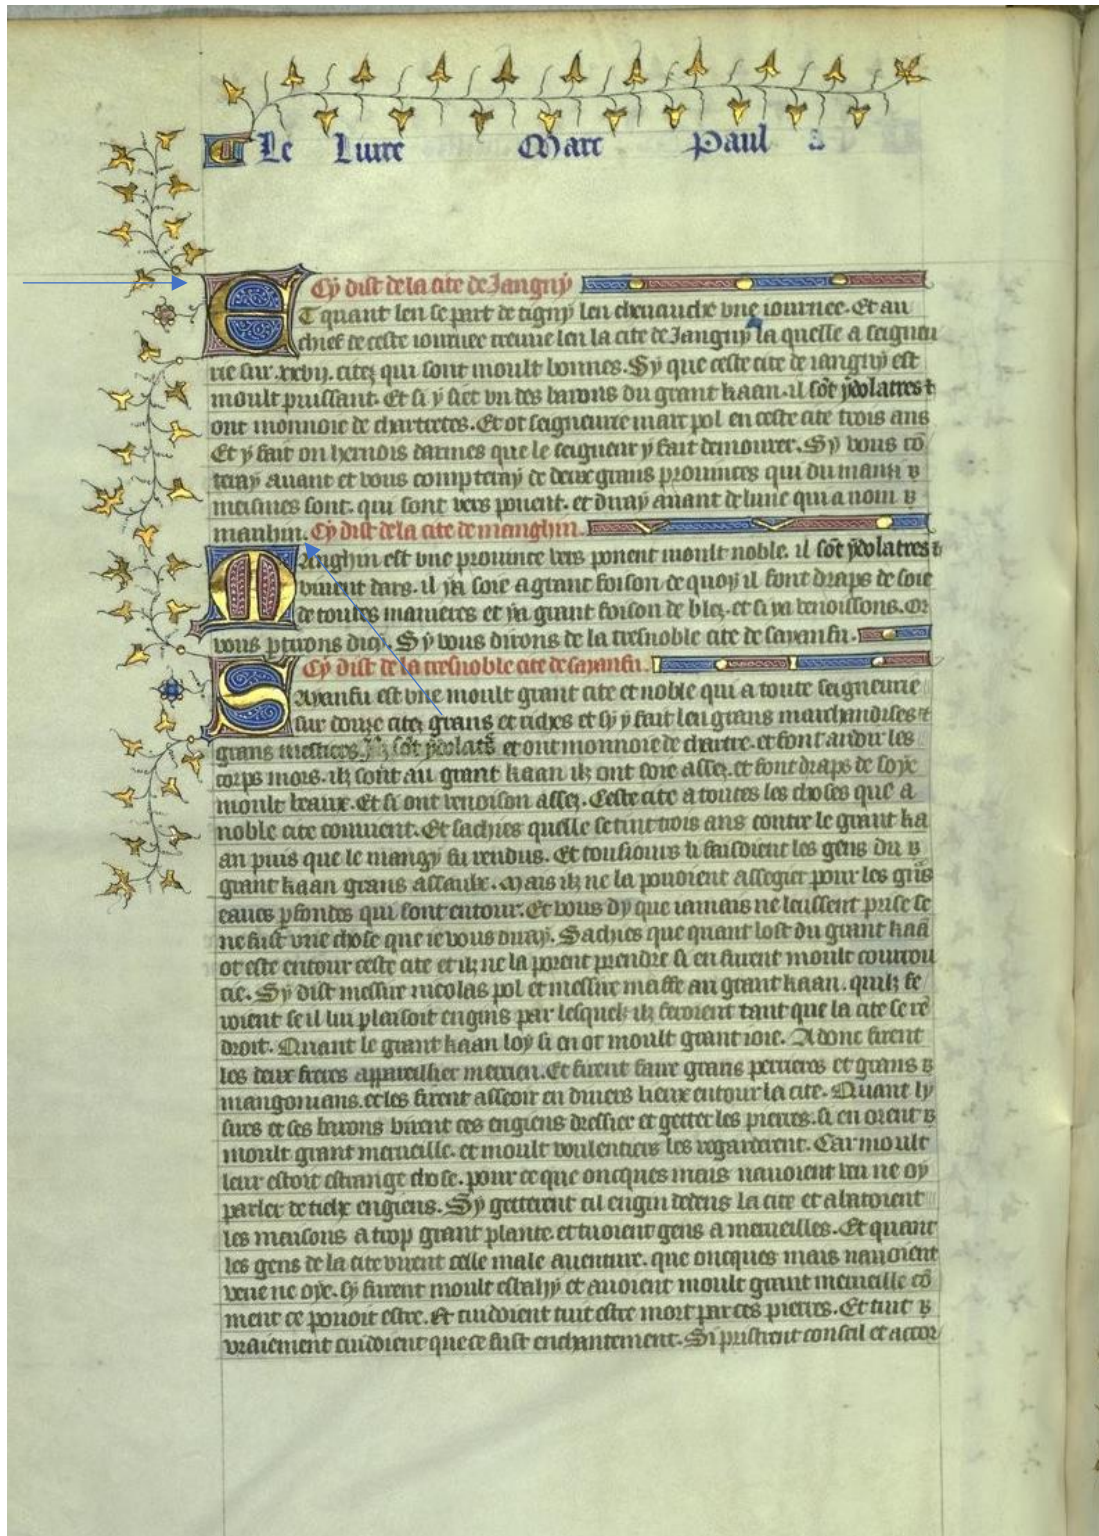 Le Liure Marc Paul
Cy dist de la cite de Jangny
Et quant len se part de tigny len cheuauche vne iournee. Et au
chief de ceste iournee treuue len la cite de Jangny la quelle a seigneu
rie sur .xxvij. citez qui sont moult bonnes. Sy que ceste cite de iangny est
moult puissant. Et si y siet vn des barons du grant kaan. il sõt ydolatres ⁊
ont monnoie de chartretes. Et ot seigneurie marc pol en ceste cite trois ans
Et y fait on hernois darmes que le seigneur y fait demourer. Sy vous cõ
teray auant et vous compteray de deux grans prouinces qui du manzi
meismes sont. qui sont vers ponent. et diray auant de lune qui a nom
manhin. Cy dist de la cite de manghin.
Manghin est vne prouince vers ponent moult noble. il sõt ydolatres ⁊
viuent dars. il y a soie a grant foison de quoy il font draps de soie
de toutes manieres et y a grant foison de blez. et si y a venoisons. Or
vous ꝑtirons dicy. Sy vous dirons de la tresnoble cite de sayanfu.
Cy dist de la tresnoble cite de sayanfu.
Sayanfu est vne moult grant cite et noble qui a toute seigneurie
sur douze citez grans et riches et sy y fait len grans marchandises ⁊
grans mestiers. Ilz sõt ydolatrs et ont monnoie de chartre. et font ardoir les
corps mors. ilz sont au grant kaan ilz ont soie assez. et font draps de soye
moult beaux. Et si ont venoison assez. Ceste cite a toutes les choses que a
noble cite conuient. Et sachies quelle se tint trois ans contre le grant ka
an puis que le mangy fu rendus. Et tousiours li faisoient les gens du
grant kaan grans assaulx. Mais ilz ne la pouoient assegier pour les grãs
eaues ꝑfondes qui sont entour. Et vous dy que iamais ne leussent prise se
ne fust vne chose que ie vous diray. Sachies que quant lost du grant kaã
ot este entour ceste cite et ilz ne la porent prendre si en furent moult courrou
cie. Sy dist messire nicolas pol et messire maffe au grant kaan. quilz fe
roient se il lui plaisoit engins par lesquelz ilz feroient tant que la cite se rẽ
droit. Quant le grant kaan loy si en ot moult grant ioie. Adonc firent
les deux freres appareillier merrien. Et firent faire grans perrieres et grans
mangonians. et les firent asseoir en diuers lieux entour la cite. Quant ly
sires et ses barons virent ces engiens dressier et getter les pierres. si en orent
moult grant merueille. et moult voulentiers les regarderent. Car moult
leur estoit estrange chose. pour ce que oncques mais nauoient veu ne oy
parler de tielx engiens. Sy getterent cil engin dedens la cite et abatoient
les maisons a trop grant plante. et tuoient gens a merueilles. Et quant
les gens de la cite virent celle male auenture. que oncques mais nauoient
veue ne oye. sy furent moult esbahy et auoient moult grant merueille cõ
ment ce pouoit estre. Et cuidoient tuit estre mort par ces pierres. Et tuit
vraiement cuidoient que ce fust enchantement. Si pristrent conseil et accor